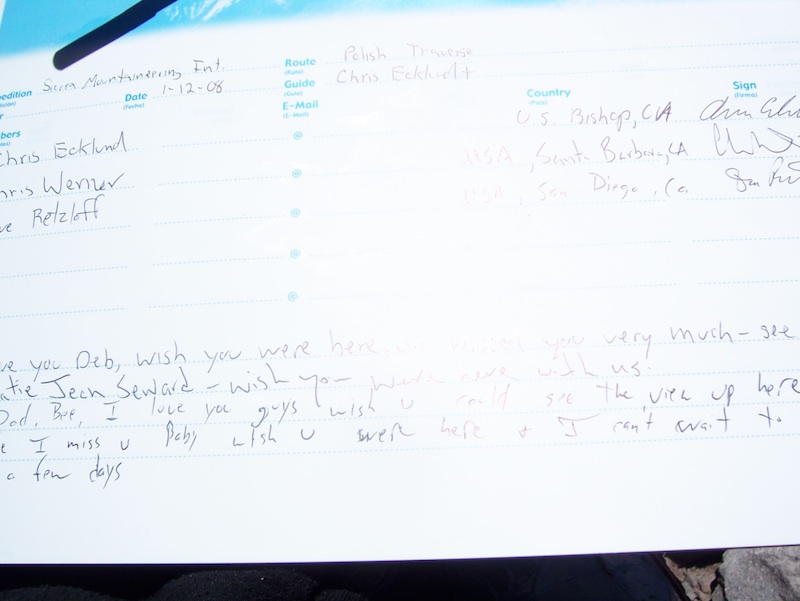 pedition Sierra Mountaineering Int. Route (Ruta) Polish Traverse
Date (Fecha) 1-12-08 Guide (Guía) Chris Ecklund
E-Mail (E-Mail) Country (País) Sign (Firma)
bers
Chris Ecklund @ U.S. Bishop, CA
hris Werner @ USA, Santa Barbara, CA
ve Retzloff @ USA, San Diego, Ca.
@
@
ve you Deb, wish you were here, missed you very much - see
atie Jean Seward - wish you were here with us.
Dad, Bee, I love you guys wish u could see the view up here
e I miss u Baby wish u were here + I can't wait to
a few days